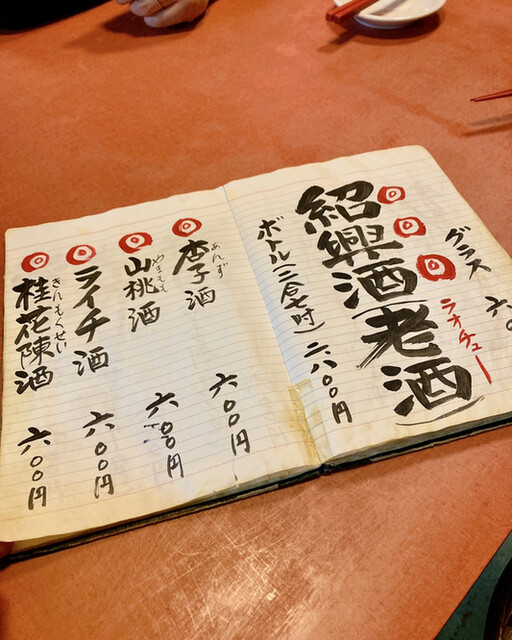 グラス 六〇
紹興酒(老酒)
ラオチュー
ボトル(二合七吋)二八〇〇円
杏子酒 六〇〇円
あんず
山桃酒 六〇〇円
やまもも
ライチ酒 六〇〇円
桂花陳酒 六〇〇円
きんもくせい